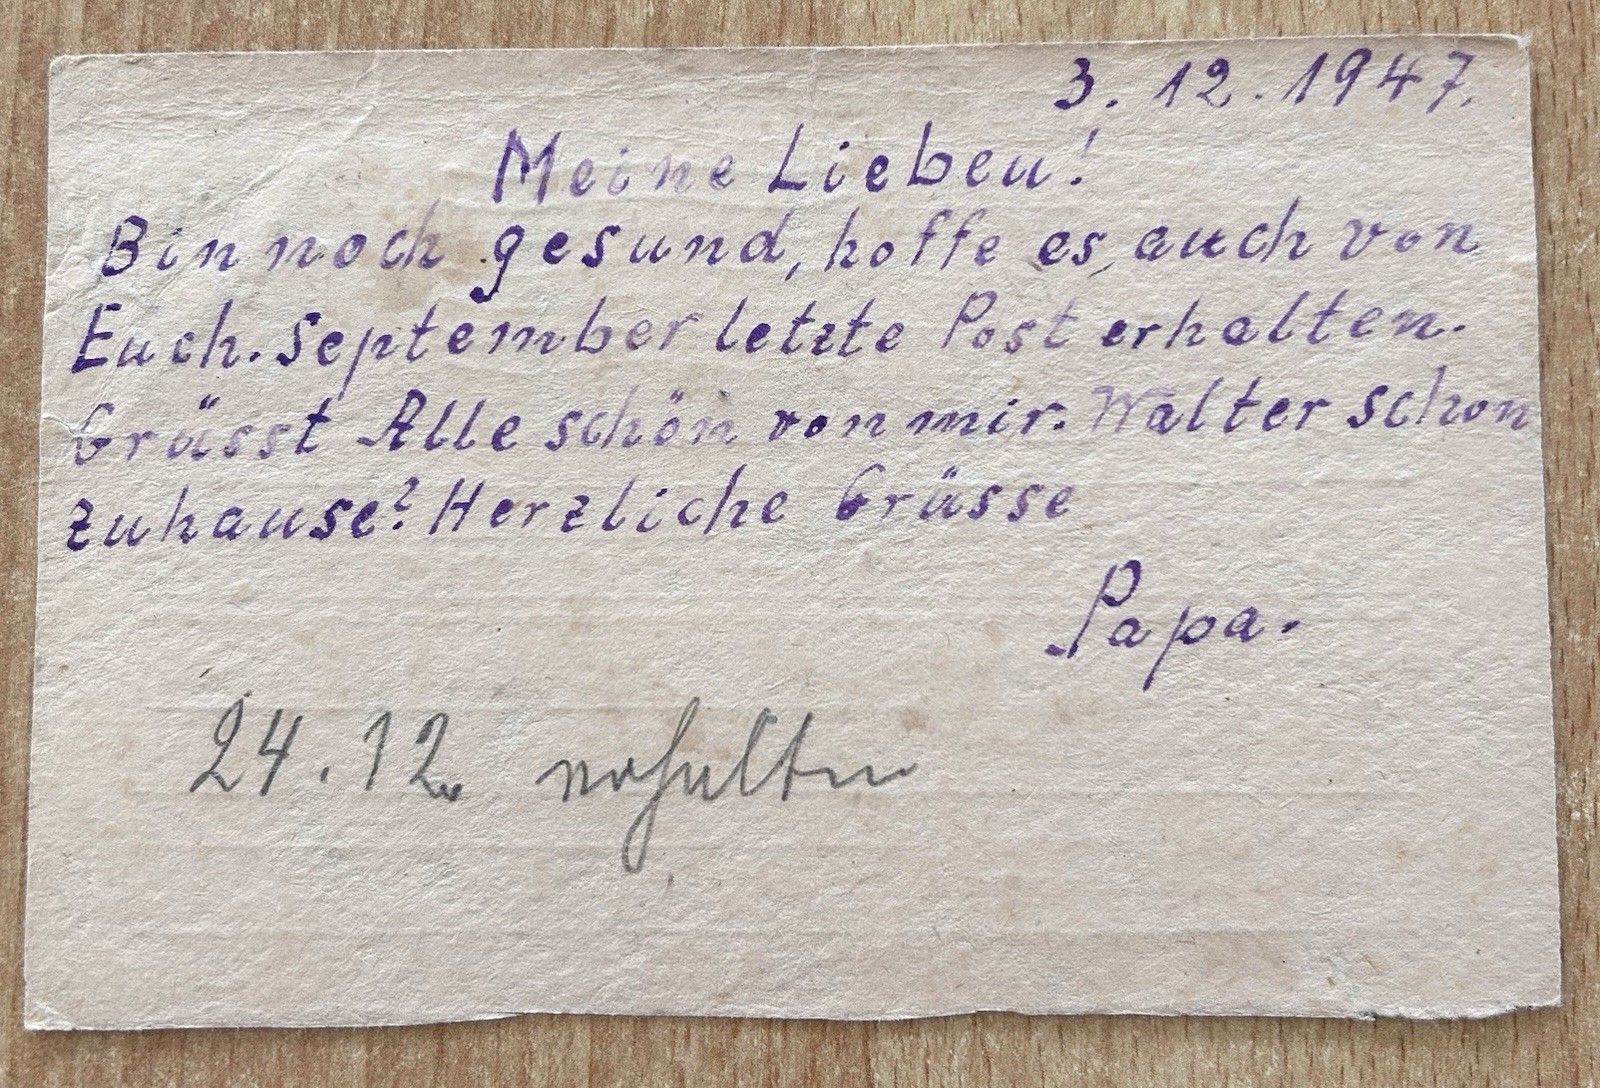 3. 12. 1947.
Meine Lieben!
Bin noch gesund, hoffe es auch von
Euch. September letzte Post erhalten.
Grüsst Alle schön von mir. Walter schon
zuhause? Herzliche Grüsse
Papa.
24. 12. erhalten